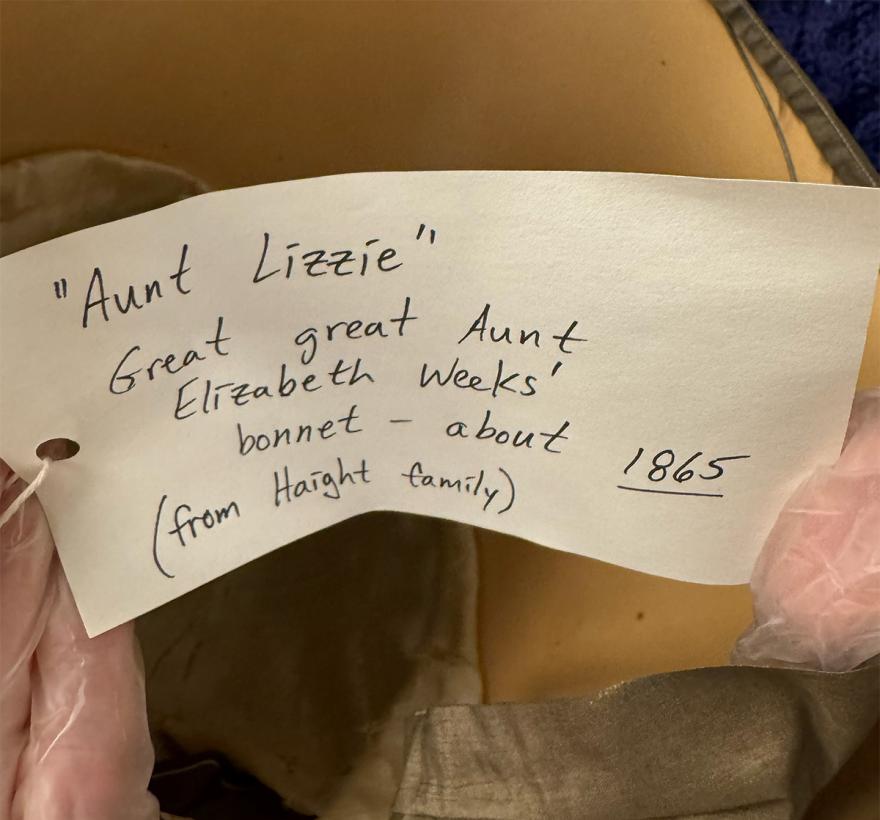 "Aunt Lizzie"
Great great Aunt
Elizabeth Weeks'
bonnet - about
1865
(from Haight family)